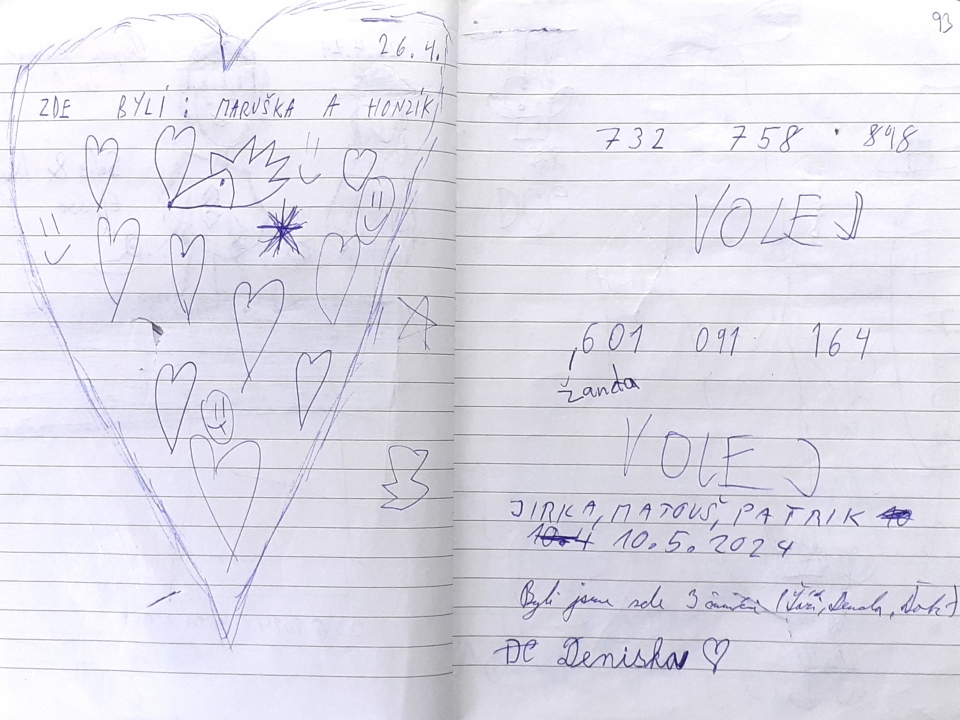 26.4.
ZDE BYLI: MARUŠKA A HONZÍK
93
732 758 898
VOLEJ
601 091 164
žanda
VOLEJ
JIRKA, MATOUŠ, PATRIK
10.5.2024
Byli jsme zde 3
DC Deniska ♡